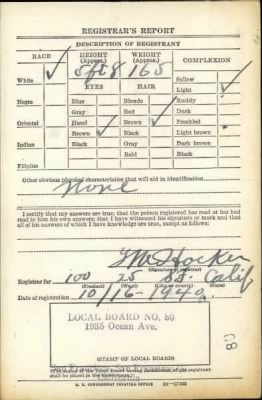 REGISTRAR'S REPORT
DESCRIPTION OF REGISTRANT
RACE HEIGHT (Approx.) WEIGHT (Approx.) COMPLEXION
5 ft 8 165
White ✓ Sallow
EYES HAIR Light ✓
Negro Blue Blonde Ruddy
Gray Red Dark
Oriental Hazel Brown ✓ Freckled
Brown ✓ Black Light brown
Indian Black Gray Dark brown
Bald Black
Filipino
Other obvious physical characteristics that will aid in identification
None
I certify that my answers are true; that the person registered has read or has had
read to him his own answers; that I have witnessed his signature or mark and that
all of his answers of which I have knowledge are true, except as follows:
(Signature of registrar)
Registrar for 100 25 Calif
(Precinct) (Ward) (City or county) (State)
Date of registration 10/16-1940
LOCAL BOARD NO. 80
1935 Ocean Ave.
80
(STAMP OF LOCAL BOARD)
shall be placed in the above space.)
U. S. GOVERNMENT PRINTING OFFICE